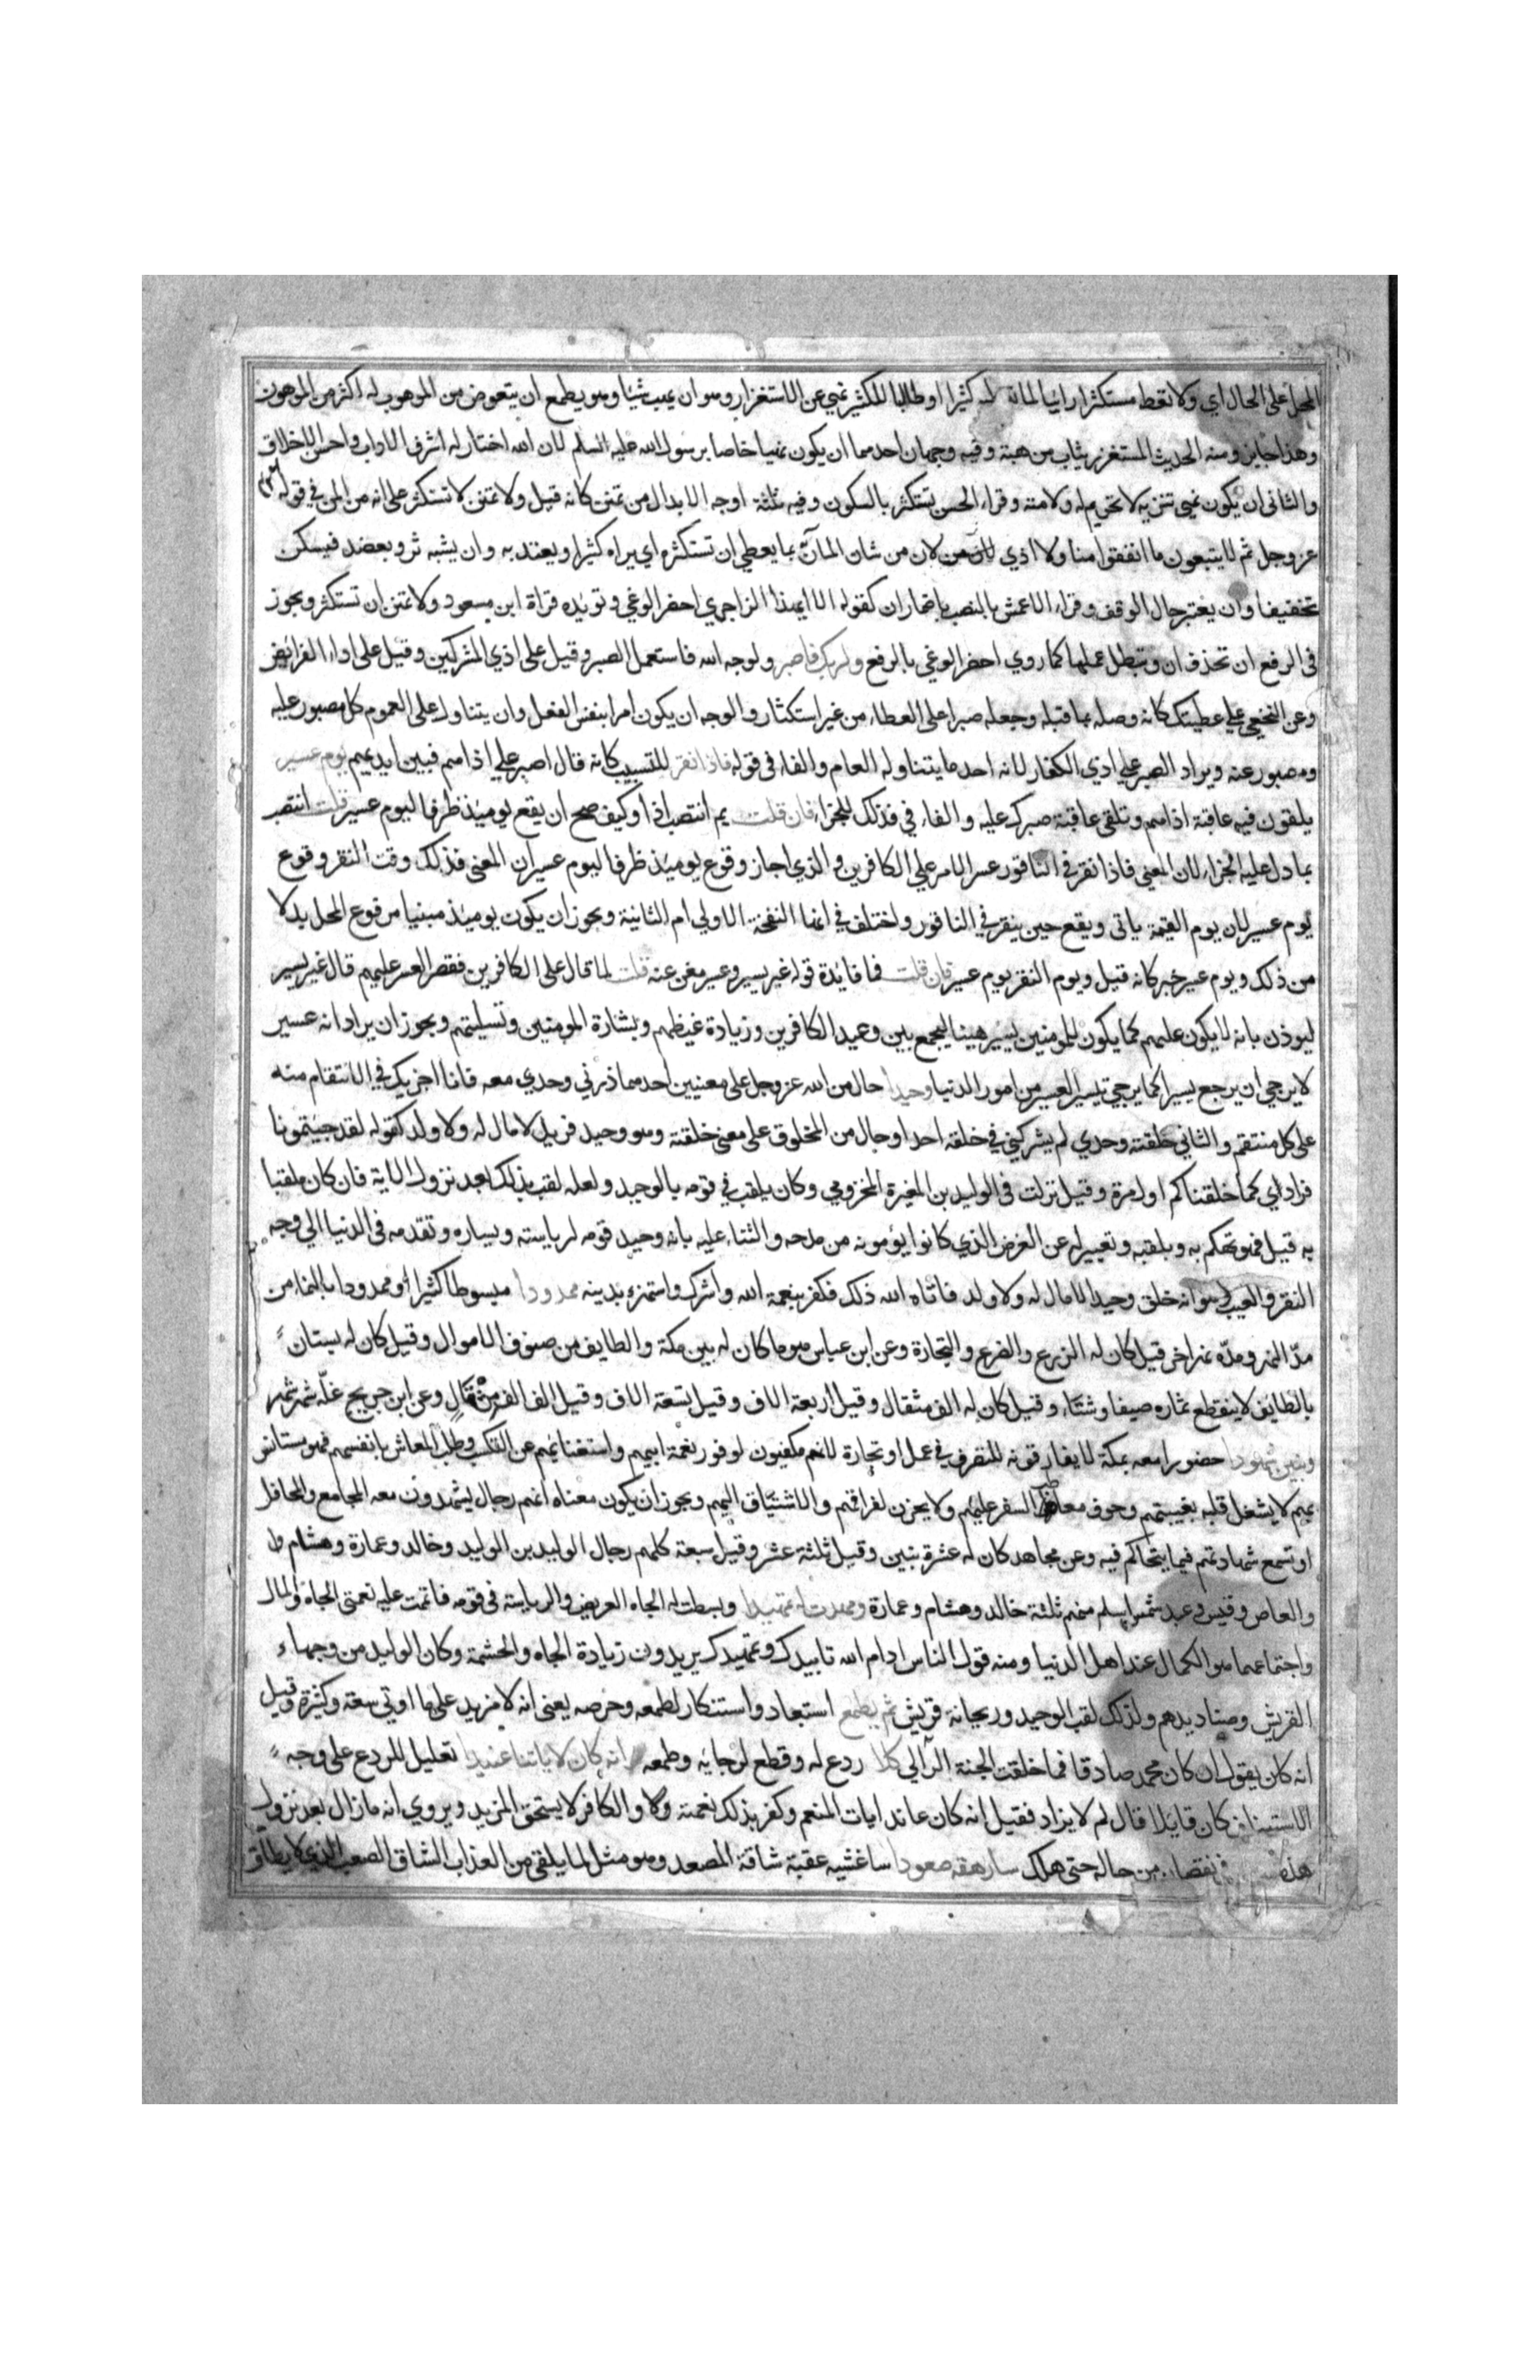 المحل على الحال اي ولا تعط مستكثرا رائيا لما تعطيه كثيرا او طالبا للكثير نهي عن الاستغزار وهو ان يهب شيئا وهو يطمع ان يتعوض من الموهوب له اكثر من الموهوب
وهذا جايز ومنه الحديث المستغزر يثاب من هبته وفيه وجهان احدهما ان يكون نهيا خاصا برسول الله عليه السلم لان الله اختار له اشرف الاداب واحسن الاخلاق
والثاني ان يكون نهي تنزيه لا تحريم له ولامته وقراء الحسن تستكثر بالسكون وفيه ثلثة اوجه الابدال من تمنن كانه قيل ولا تمنن لا تستكثر على انه من المن في قوله
عز وجل ثم لا يتبعون ما انفقوا منا ولا اذي لان من شان المنان بما يعطي ان تستكثره اي يراه كثيرا ويعتد به وان يشبه ثرو بعضد فيسكن
تخفيفا وان يعتبر حال الوقف وقراء الاعمش بالنصب باضمار ان كقوله الا ايهذا الزاجري احضر الوغي وتويده قراة ابن مسعود ولا تمنن ان تستكثر ويجوز
في الرفع ان تحذف ان وتبطل عملها كما روي احضر الوغي بالرفع ولربك فاصبر ولوجه الله فاستعمل الصبر وقيل على اذي المشركين وقيل على اداء الفرائض
وعن النخعي علي عطيتك كانه وصله بما قبله وجعله صبرا على العطاء من غير استكثار والوجه ان يكون امرا بنفس الفعل وان يتناول على العموم كل مصبور عليه
ومصبور عنه ويراد الصبر علي اذي الكفار لانه احد ما يتناوله العام والفاء في قوله فاذا نقر للتسبيب كانه قال اصبر علي اذاهم فبين ايديهم يوم عسير
يلقون فيه عاقبة اذاهم وتلقي عاقبة صبرك عليه والفاء في فذلك للجزاء فان قلت بم انتصب اذا وكيف صح ان يقع يومئذ ظرفا ليوم عسير قلت انتصب
بما دل عليه الجزاء لان المعني فاذا نقر في الناقور عسر الامر علي الكافرين والذي اجاز وقوع يومئذ ظرفا ليوم عسير ان المعني فذلك وقت النقر وقوع
يوم عسير لان يوم القيمة ياتي ويقع حين ينقر في الناقور واختلف في انها النفخة الاولي ام الثانية ويجوز ان يكون يومئذ مبنيا مرفوع المحل بدلا
من ذلك ويوم عسير خبر كانه قيل ويوم النقر يوم عسير فان قلت فما فائدة قوله غير يسير وعسير مغن عنه قلت لما قال على الكافرين فقصر العسر عليهم قال غير يسير
ليوذن بانه لا يكون عليهم كما يكون للمومنين يسيرا هينا ليجمع بين وعيد الكافرين وزيادة غيظهم وبشارة المومنين وتسليتهم ويجوز ان يراد انه عسير
لا يرجي ان يرجع يسيرا كما يرجي تيسير العسير من امور الدنيا وحيدا حال من الله عز وجل على معنيين احدهما ذرني وحدي معه فانا اجزيك في الانتقام منه
على كل منتقم والثاني خلقته وحدي لم يشركني في خلقه احد او حال من المخلوق على معني خلقته وهو وحيد فريد لا مال له ولا ولد كقوله لقد جيتمونا
فرادي كما خلقناكم اول مرة وقيل نزلت في الوليد بن المغيرة المخزومي وكان يلقب في قومه بالوحيد ولعله لقب بذلك بعد نزول الاية فان كان ملقبا
به قبل فهو تهكم به وبلقبه وتغيير له عن الغرض الذي كانوا يؤمونه من مدحه والثناء عليه بانه وحيد قومه لرياسته ويساره وتقدمه في الدنيا الي وجه
النقر والعيب وهو انه خلق وحيدا لا مال له ولا ولد فاتاه الله ذلك فكفر بنعمة الله واشرك واستهزء بدينه ممدودا مبسوطا كثيرا او ممدودا بالنماء من
مد النهر ومده نهر اخر قيل كان له الزرع والضرع والتجارة وعن ابن عباس هو ما كان له بين مكة والطايف من صنوف الاموال وقيل كان له بستان
بالطايف لا ينقطع ثماره صيفا وشتاء وقيل كان له الف مثقال وقيل اربعة الاف وقيل تسعة الاف وقيل الف الف مثقال وعن ابن جريج غلة شهر شهر
وبنين شهودا حضورا معه بمكة لا يفارقونه للتصرف في عمل او تجارة لانهم مكفيون لوفور نعمة ابيهم واستغنائهم عن التكسب وطلب المعاش بانفسهم فهو مستانس
بهم لا يشتغل قلبه بغيبتهم وخوف معاطب السفر عليهم ولا يحزن لفراقهم والاشتياق اليهم ويجوز ان يكون معناه انهم رجال يشهدون معه المجامع والمحافل
او تسمع شهادتهم فيما يتحاكم فيه وعن مجاهد كان له عشرة بنين وقيل ثلثة عشر وقيل سبعة كلهم رجال الوليد بن الوليد وخالد وعمارة وهشام
والعاص وقيس وعبد شمس اسلم منهم ثلثة خالد وهشام وعمارة ومهدت له تمهيدا وبسطت له الجاه العريض والرياسة في قومه فاتممت عليه نعمتي الجاه والمال
واجتماعهما هو الكمال عند اهل الدنيا ومنه قول الناس ادام الله تاييدك وتمهيدك يريدون زيادة الجاه والحشمة وكان الوليد من وجهاء
القريش وصناديدهم ولذلك لقب الوحيد وريحانة قريش ثم يطمع استبعاد واستنكار لطمعه وحرصه يعني انه لا مزيد على ما اوتي سعة وكثرة وقيل
انه كان يقول ان كان محمد صادقا فما خلقت الجنة الا لي كلا ردع له وقطع لرجايه وطمعه انه كان لاياتنا عنيدا تعليل للردع على وجه
الاستيناف كان قايلا قال لم لا يزاد فقيل انه كان عاند ايات المنعم وكفر بذلك نعمته والكافر لا يستحق المزيد ويروي انه ما زال بعد نزول
هذه في نقصان من حاله حتى هلك سارهقه صعودا ساغشيه عقبة شاقة المصعد وهو مثل لما يلقي من العذاب الشاق الصعب الذي لا يطاق